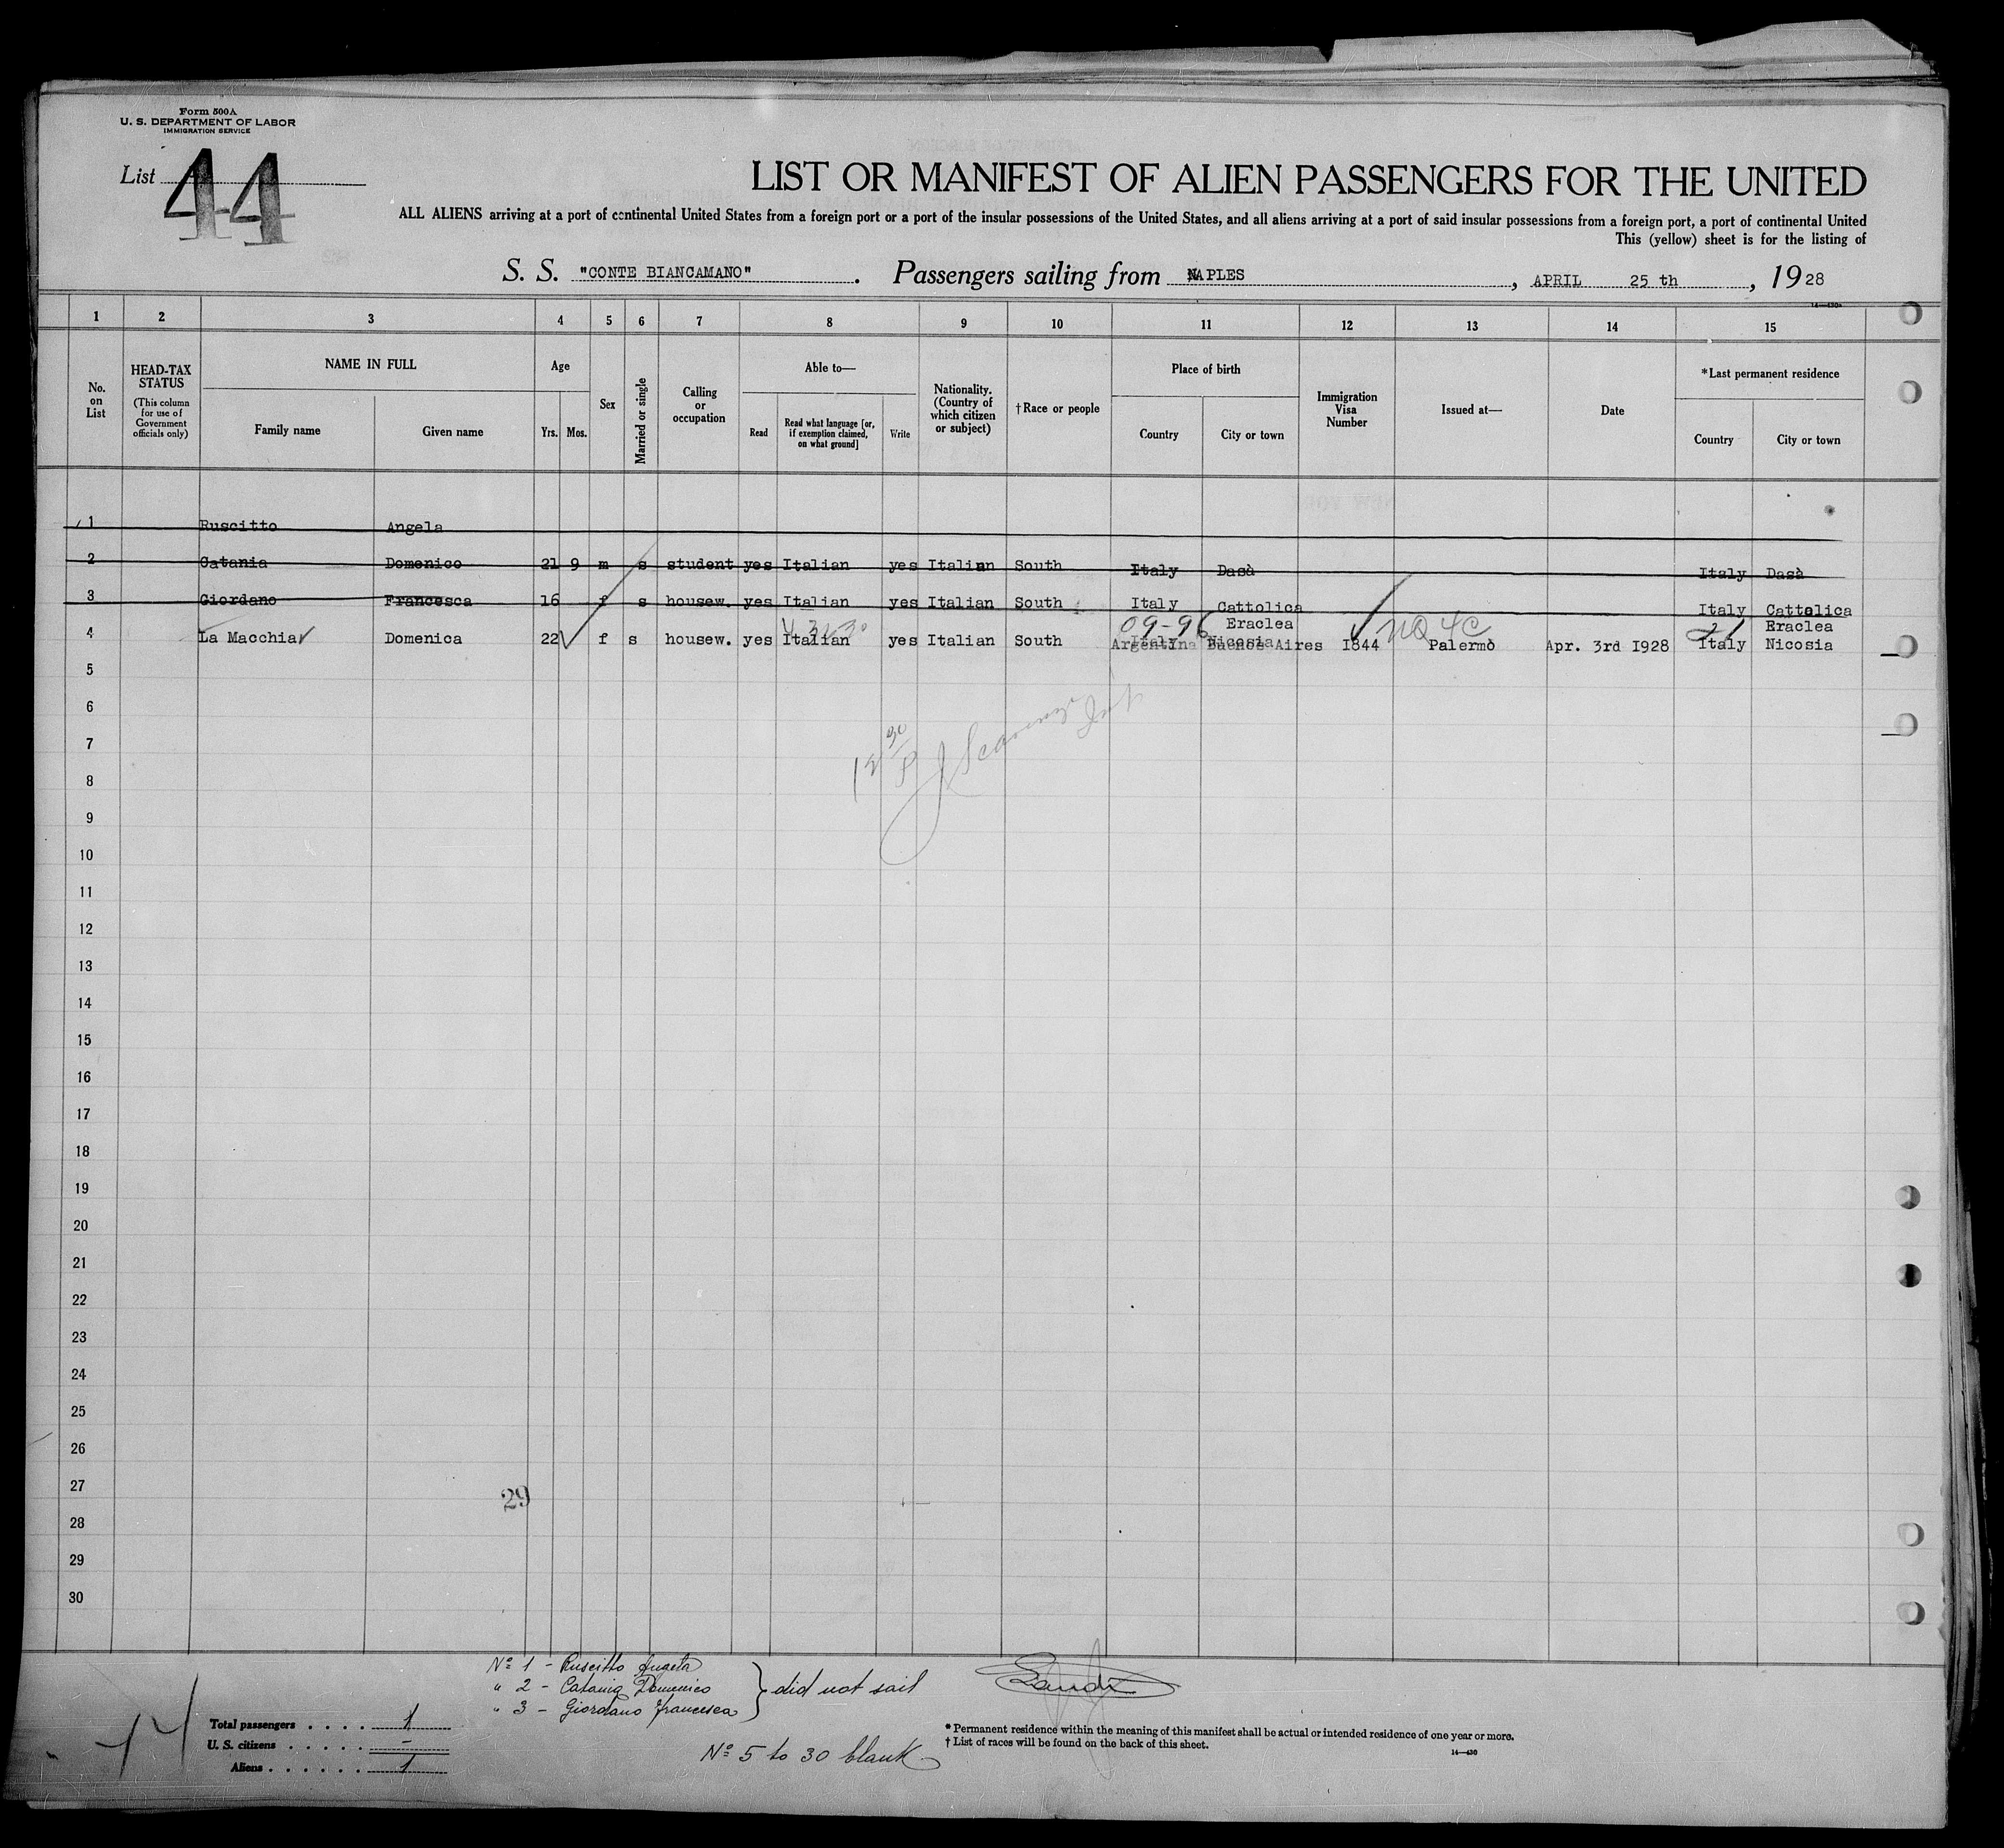 Form 500A
U. S. DEPARTMENT OF LABOR
IMMIGRATION SERVICE
List 44
LIST OR MANIFEST OF ALIEN PASSENGERS FOR THE UNITED
ALL ALIENS arriving at a port of continental United States from a foreign port or a port of the insular possessions of the United States, and all aliens arriving at a port of said insular possessions from a foreign port, a port of continental United
This (yellow) sheet is for the listing of
S. S. "CONTE BIANCAMANO". Passengers sailing from NAPLES, APRIL 25 th, 1928
1 2 3 4 5 6 7 8 9 10 11 12 13 14 15
No. on List
HEAD-TAX STATUS
(This column for use of Government officials only)
NAME IN FULL
Family name
Given name
Age
Yrs.
Mos.
Sex
Married or single
Calling or occupation
Able to—
Read
Read what language [or, if exemption claimed, on what ground]
Write
Nationality. (Country of which citizen or subject)
†Race or people
Place of birth
Country
City or town
Immigration Visa Number
Issued at—
Date
*Last permanent residence
Country
City or town
1 Ruscitto Angela
2 Catania Domenico 21 9 m s student yes Italian yes Italian South Italy Dasà Italy Dasà
3 Giordano Francesca 16 f s housew. yes Italian yes Italian South Italy Cattolica Italy Cattolica
09-96 Eraclea NQ 4C 21 Eraclea
4 La Macchia Domenica 22 f s housew. yes Italian yes Italian South Argentina Buenos Aires 1844 Palermò Apr. 3rd 1928 Italy Nicosia
5
6
7
8
9
10
11
12
13
14
15
16
17
18
19
20
21
22
23
24
25
26
27
29
28
29
30
Nº 1 - Ruscitto Angela
" 2 - Catania Domenico
" 3 - Giordano Francesca
did not sail
Nº 5 to 30 blank
Total passengers . . . . 1
U. S. citizens . . . . . -
Aliens . . . . . . 1
* Permanent residence within the meaning of this manifest shall be actual or intended residence of one year or more.
† List of races will be found on the back of this sheet.
14—430